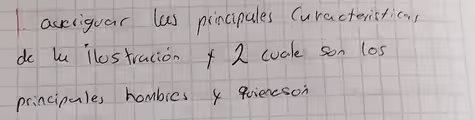 1. averiguar las principales Caracteristicas
de la ilostración y 2 cuale son los
principales hombres y quienesón